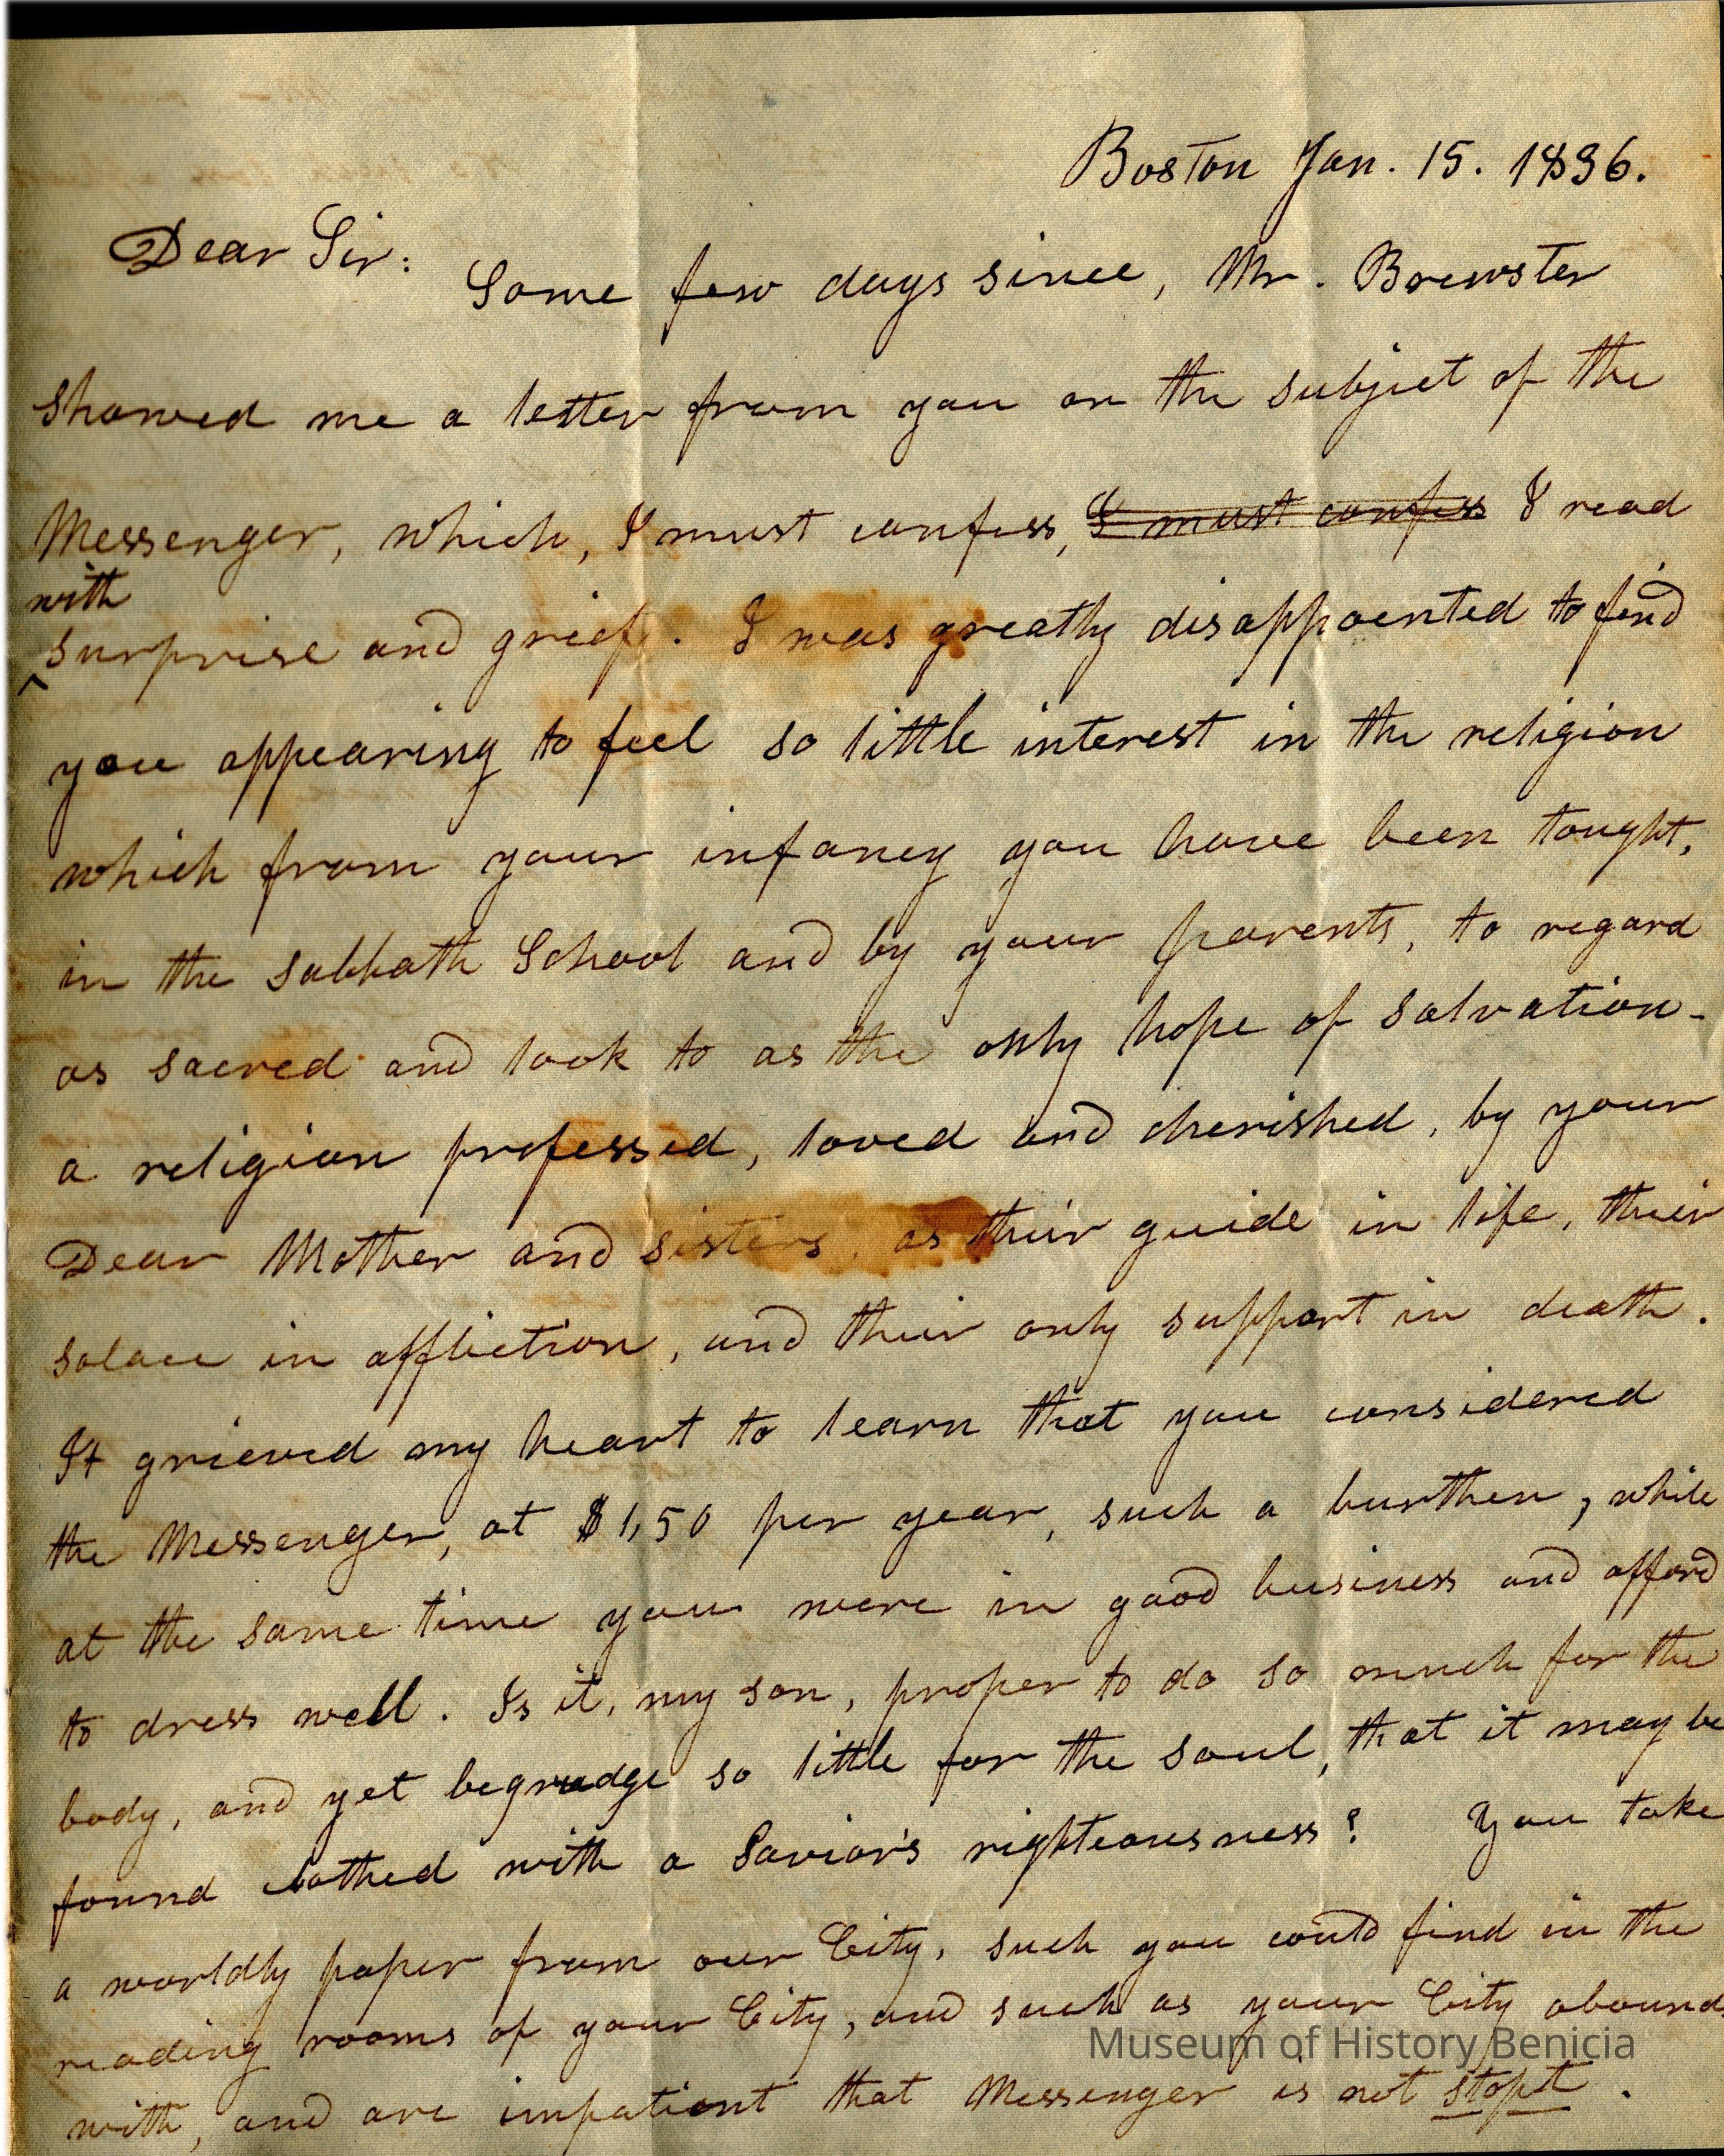 Boston Jan. 15. 1836.
Dear Sir:
Some few days since, Mr. Brewster
showed me a letter from you on the subject of the
Messenger, which, I must confess, I must confess I read
with
^surprise and grief. I was greatly disappointed to find
you appearing to feel so little interest in the religion
which from your infancy you have been tought,
in the sabbath School and by your parents, to regard
as sacred and look to as the only hope of salvation-
a religion professed, loved and cherished, by your
Dear Mother and sisters, as their guide in life, their
solace in affliction, and their only support in death.
It grieved my heart to learn that you considered
the Messenger, at $1,50 per year, such a burthen, while
at the same time you were in good business and afford
to dress well. Is it, my son, proper to do so much for the
body, and yet begrudge so little for the soul, that it may be
found clothed with a Savior's righteousness? You take
a worldly paper from our City, such you could find in the
reading rooms of your City, and such as your City abounds
with, and are impatient that Messenger is not stopt.
Museum of History Benicia